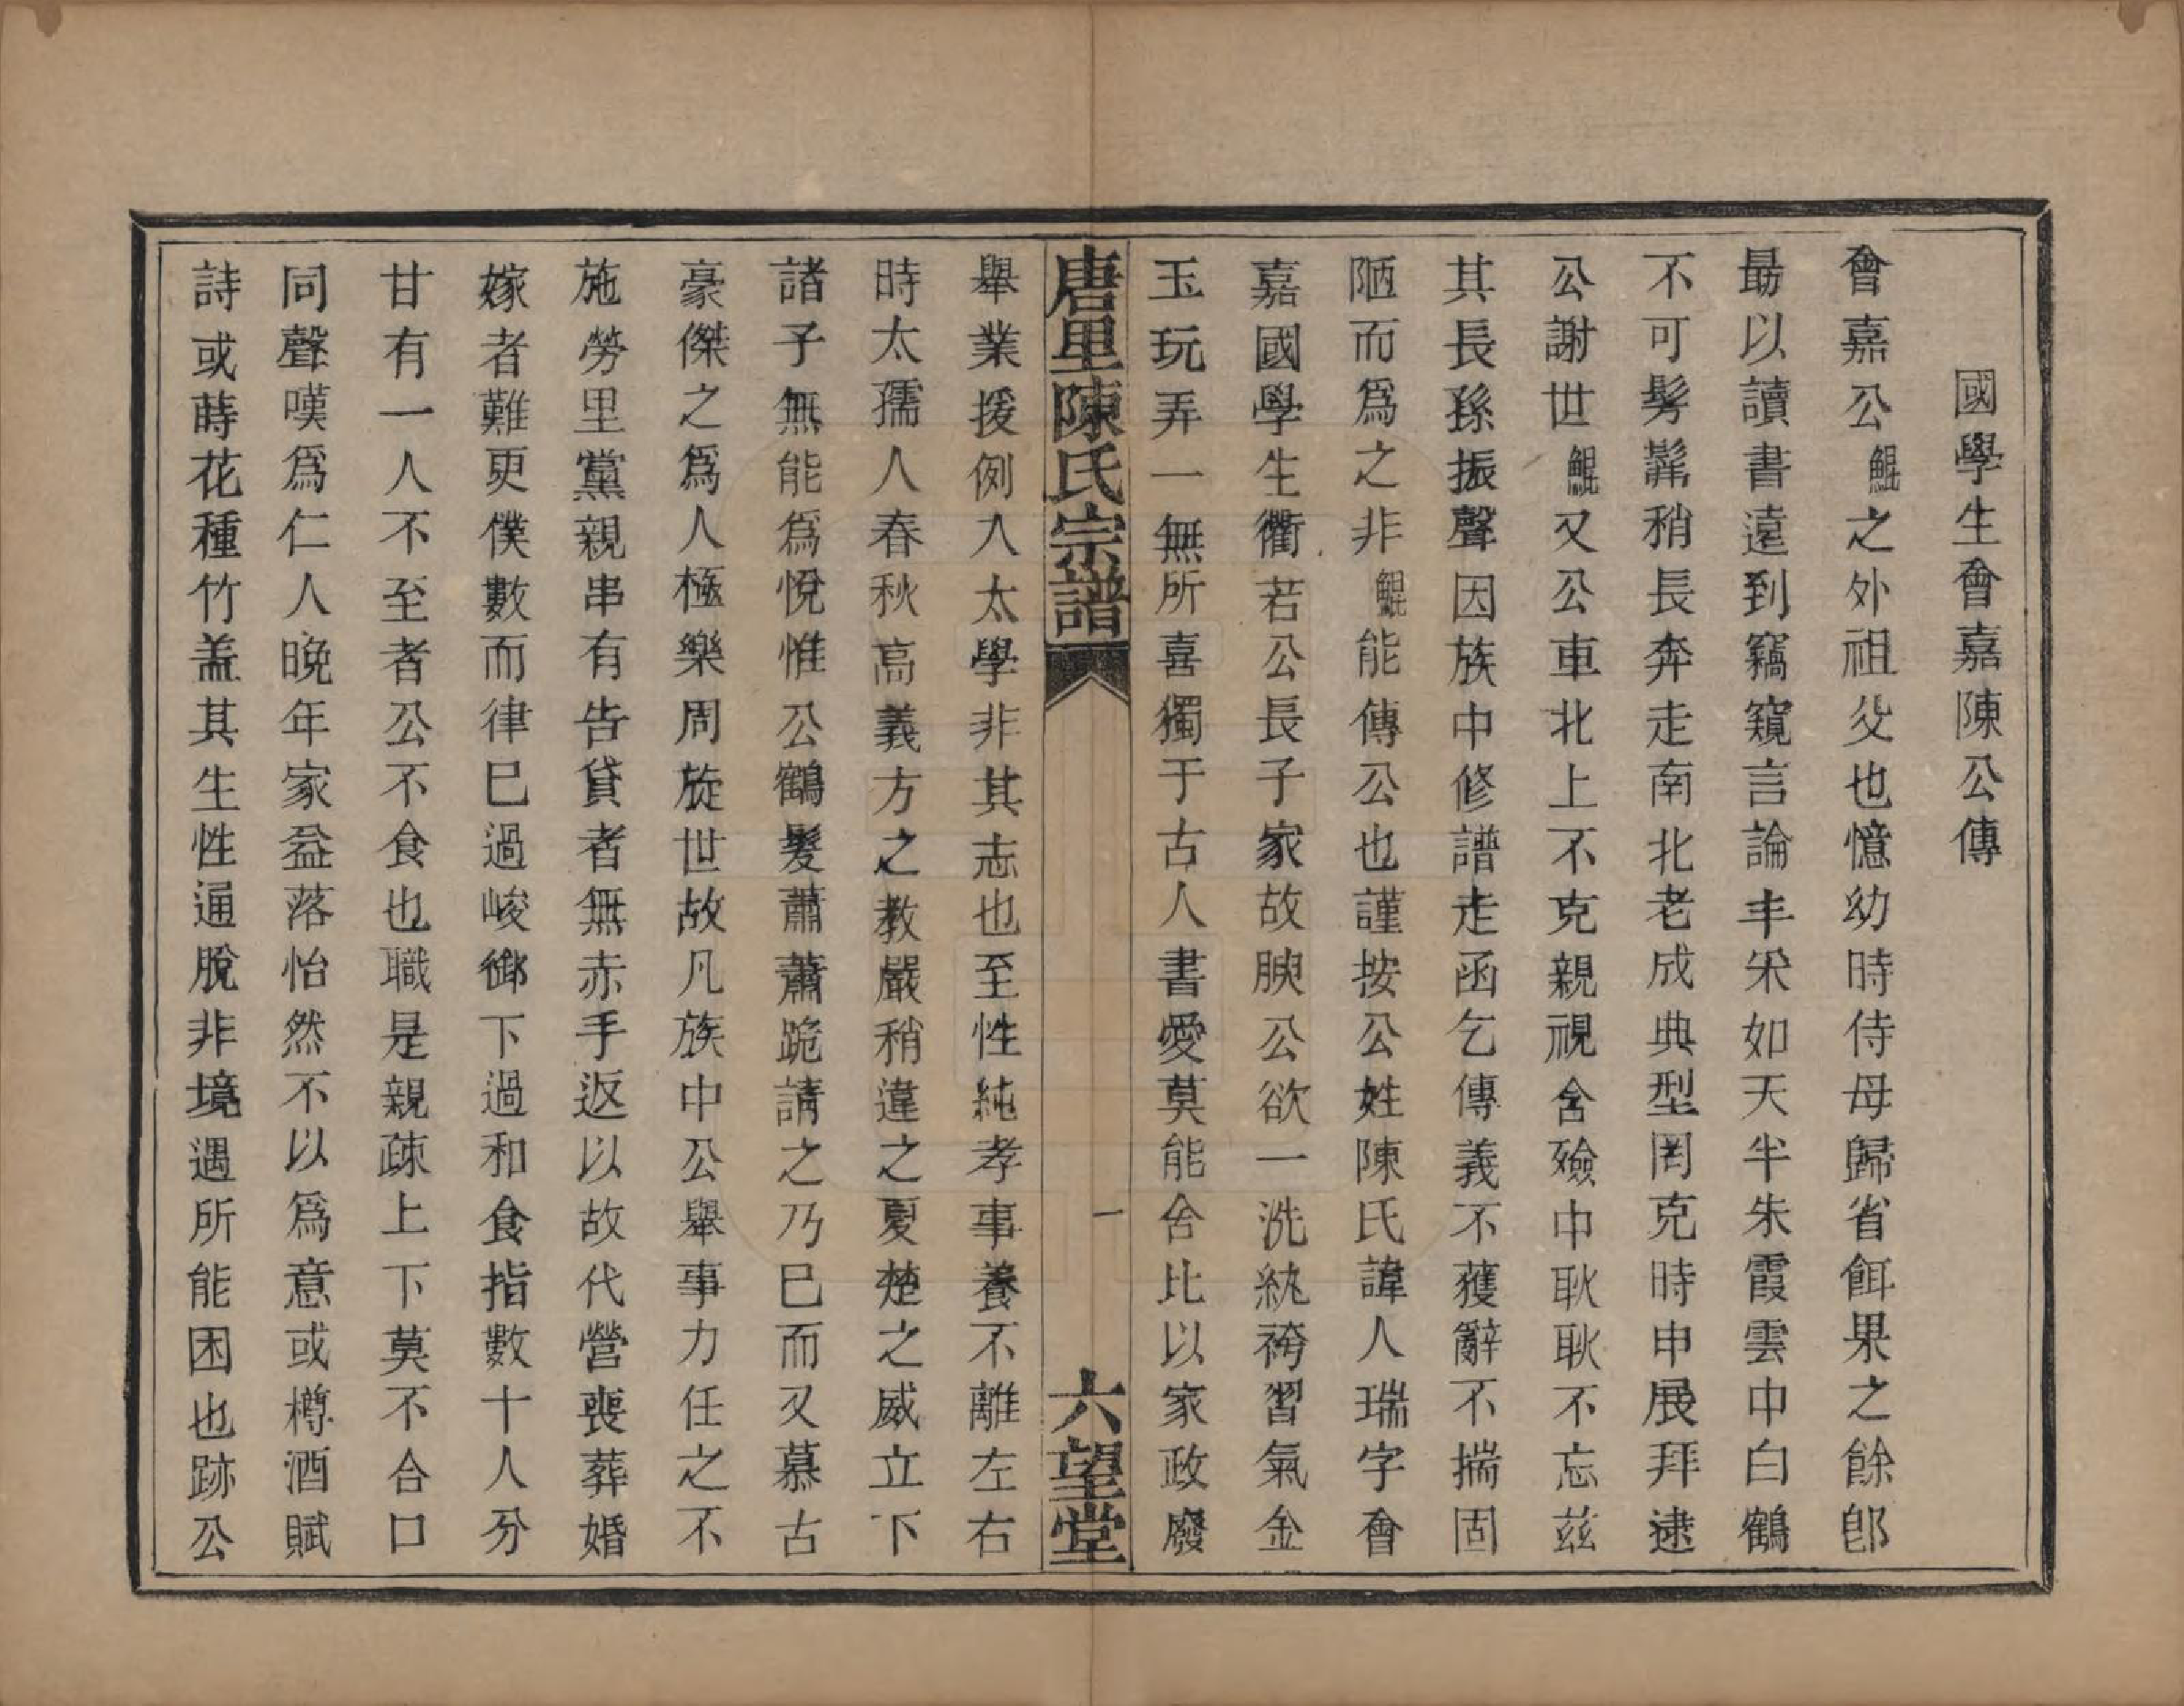 國學生會嘉陳公傳
會嘉公鯤之外祖父也憶幼時侍母歸省餌果之餘卽
最以讀書遠到竊窺言論丰采如天半朱霞雲中白鶴
不可髣髴稍長奔走南北老成典型罔克時申展拜逮
公謝世鯤又公車北上不克親視含殮中耿耿不忘茲
其長孫振聲因族中修譜走函乞傳義不獲辭不揣固
陋而爲之非鯤能傳公也謹按公姓陳氏諱人瑞字會
嘉國學生衢若公長子家故腴公欲一洗紈袴習氣金
玉玩弄一無所喜獨于古人書愛莫能舍比以家政廢
唐里陳氏宗譜 一 六望堂
舉業援例入太學非其志也至性純孝事養不離左右
時太孺人春秋高義方之教嚴稍違之夏楚之威立下
諸子無能爲悅惟公鶴髮蕭蕭跪請之乃已而又慕古
豪傑之爲人極樂周旋世故凡族中公舉事力任之不
施勞里黨親串有告貸者無赤手返以故代營喪葬婚
嫁者難更僕數而律已過峻御下過和食指數十人分
甘有一人不至者公不食也職是親疎上下莫不合口
同聲嘆爲仁人晚年家益落怡然不以爲意或樽酒賦
詩或蒔花種竹盖其生性通脫非境遇所能困也跡公